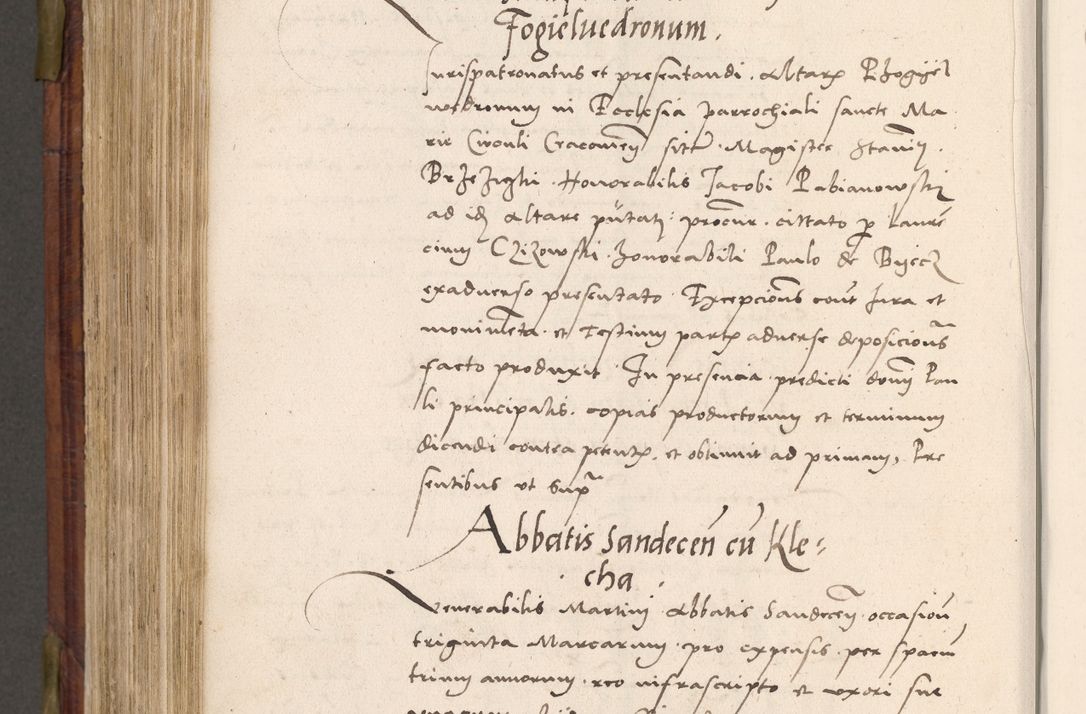 Fogiełuedronum.
Jurispatronatus et presentandi. Altarꝫ Phogiel
wedronum in Ecclesia parrochiali sancte Ma
rie Circuli Cracovien̄ sitꝫ. Magister Stanij.
Brzezinski. Honorabilis Jacobi Pabianowskj
ad idꝫ Altare pūtatj procur. cittato ꝑ Lauren̄
cium Czizowski. honorabili Paulo de Byecz
exaduerso presentato. Excepcion̄s cont̄ Jura et
monimēta. et Testium partꝫ aduerse deposicion̄s
facto produxit. In presencia predicti domj Pau
li principalis. copias productorum et terminum
dicendi contra petentꝫ. et obtinuit ad primam, Pre
sentibus ut supra
Abbatis Sandecen̄ cū Kle⸗
cha.
Venerabilis Martini Abbatis Sandecen̄. occasion̄
triginta Marcarum. pro expensis. per spaciū
trium annorum. reo infrascripto et uxori sue